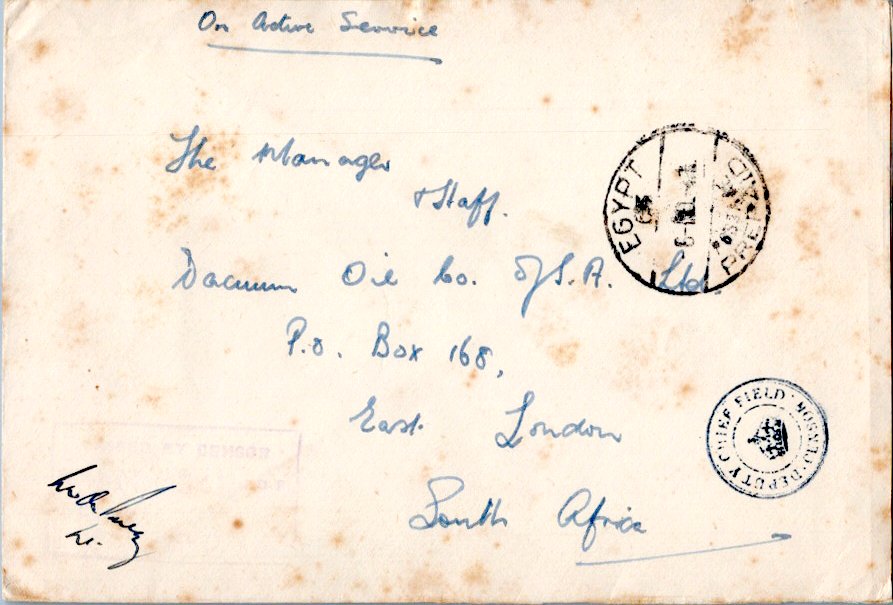 On Active Service
The Manager
& Staff.
Vacuum Oil Co. of S.A. Ltd.
P.O. Box 168,
East London
South Africa
EGYPT
PREPAID
DEPUTY CHIEF FIELD
Lt.